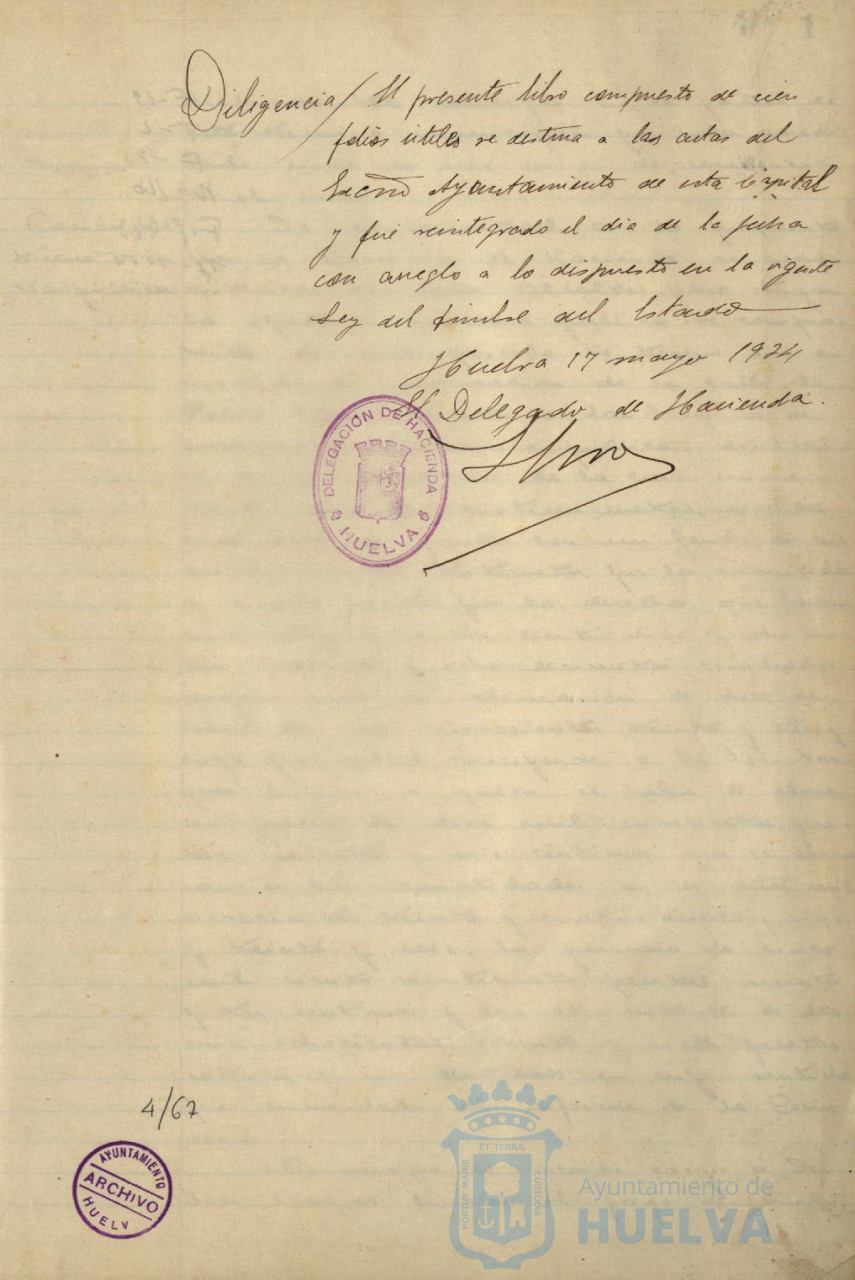 Diligencia / El presente libro compuesto de cien
folios útiles se destina a las actas del
Excmo Ayuntamiento de esta Capital
y fué reintegrado el dia de la fecha
con arreglo a lo dispuesto en la vigente
Ley del Timbre del Estado
Huelva 17 mayo 1924
El Delegado de Hacienda.
DELEGACIÓN DE HACIENDA
HUELVA
4/67
AYUNTAMIENTO
ARCHIVO
HUELV
ET TERRÆ
PORTUS MARIS
CUSTODIA
Ayuntamiento de
HUELVA